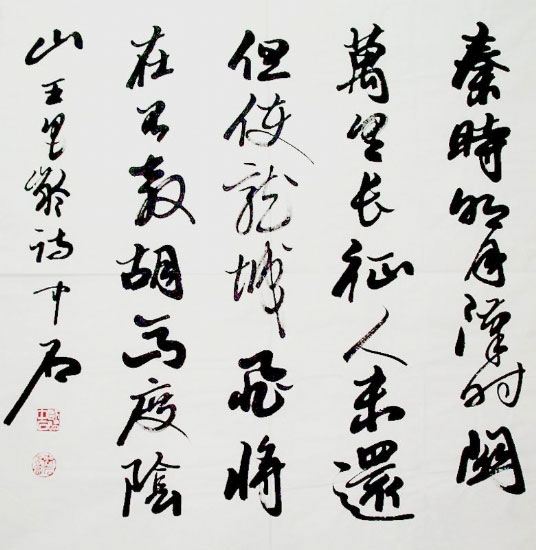 秦時明月漢时關
萬里长征人未還
但使龍城飛將
在不教胡馬度陰
山王昌齡詩中石